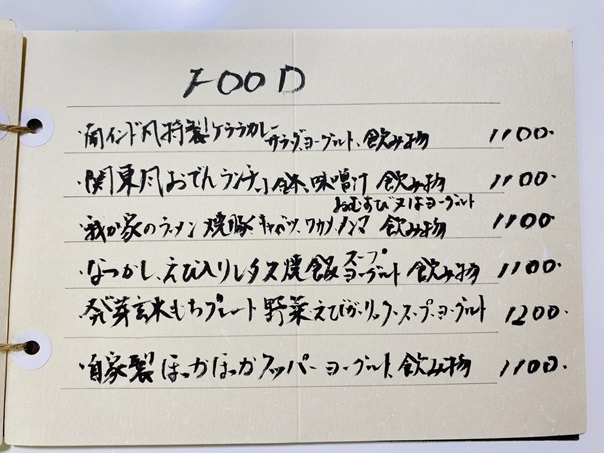 FOOD
・南インド風特製!ケララカレー サラダ、ヨーグルト、飲み物 1100.
・関東風おでんランチ、小鉢、味噌汁 飲み物 1100.
おむすび又はヨーグルト
・我が家のラーメン 焼豚、キャベツ、ワカメ、メンマ 飲み物 1100
・なつかし、えび入りレタス焼飯 スープ ヨーグルト 飲み物 1100.
・発芽玄米もちプレート 野菜 えびガーリック・スープ、ヨーグルト 1200.
・自家製ほっかほっかクッパー ヨーグルト、飲み物 1100.